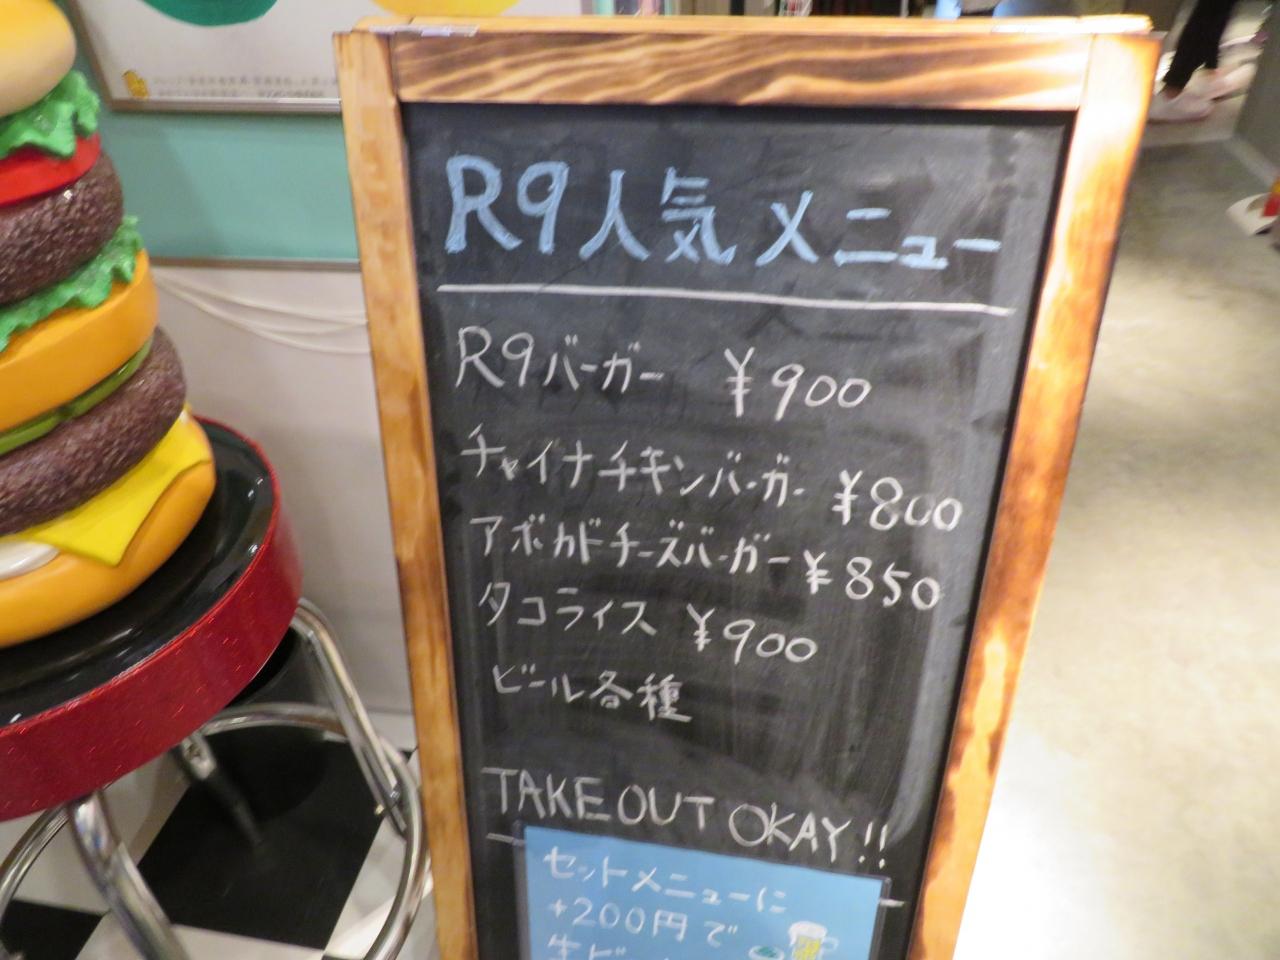 R9人気メニュー
R9バーガー ¥900
チャイナチキンバーガー ¥800
アボカドチーズバーガー ¥850
タコライス ¥900
ビール各種
TAKE OUT OKAY!!
セットメニューに
+200円で
生ビ